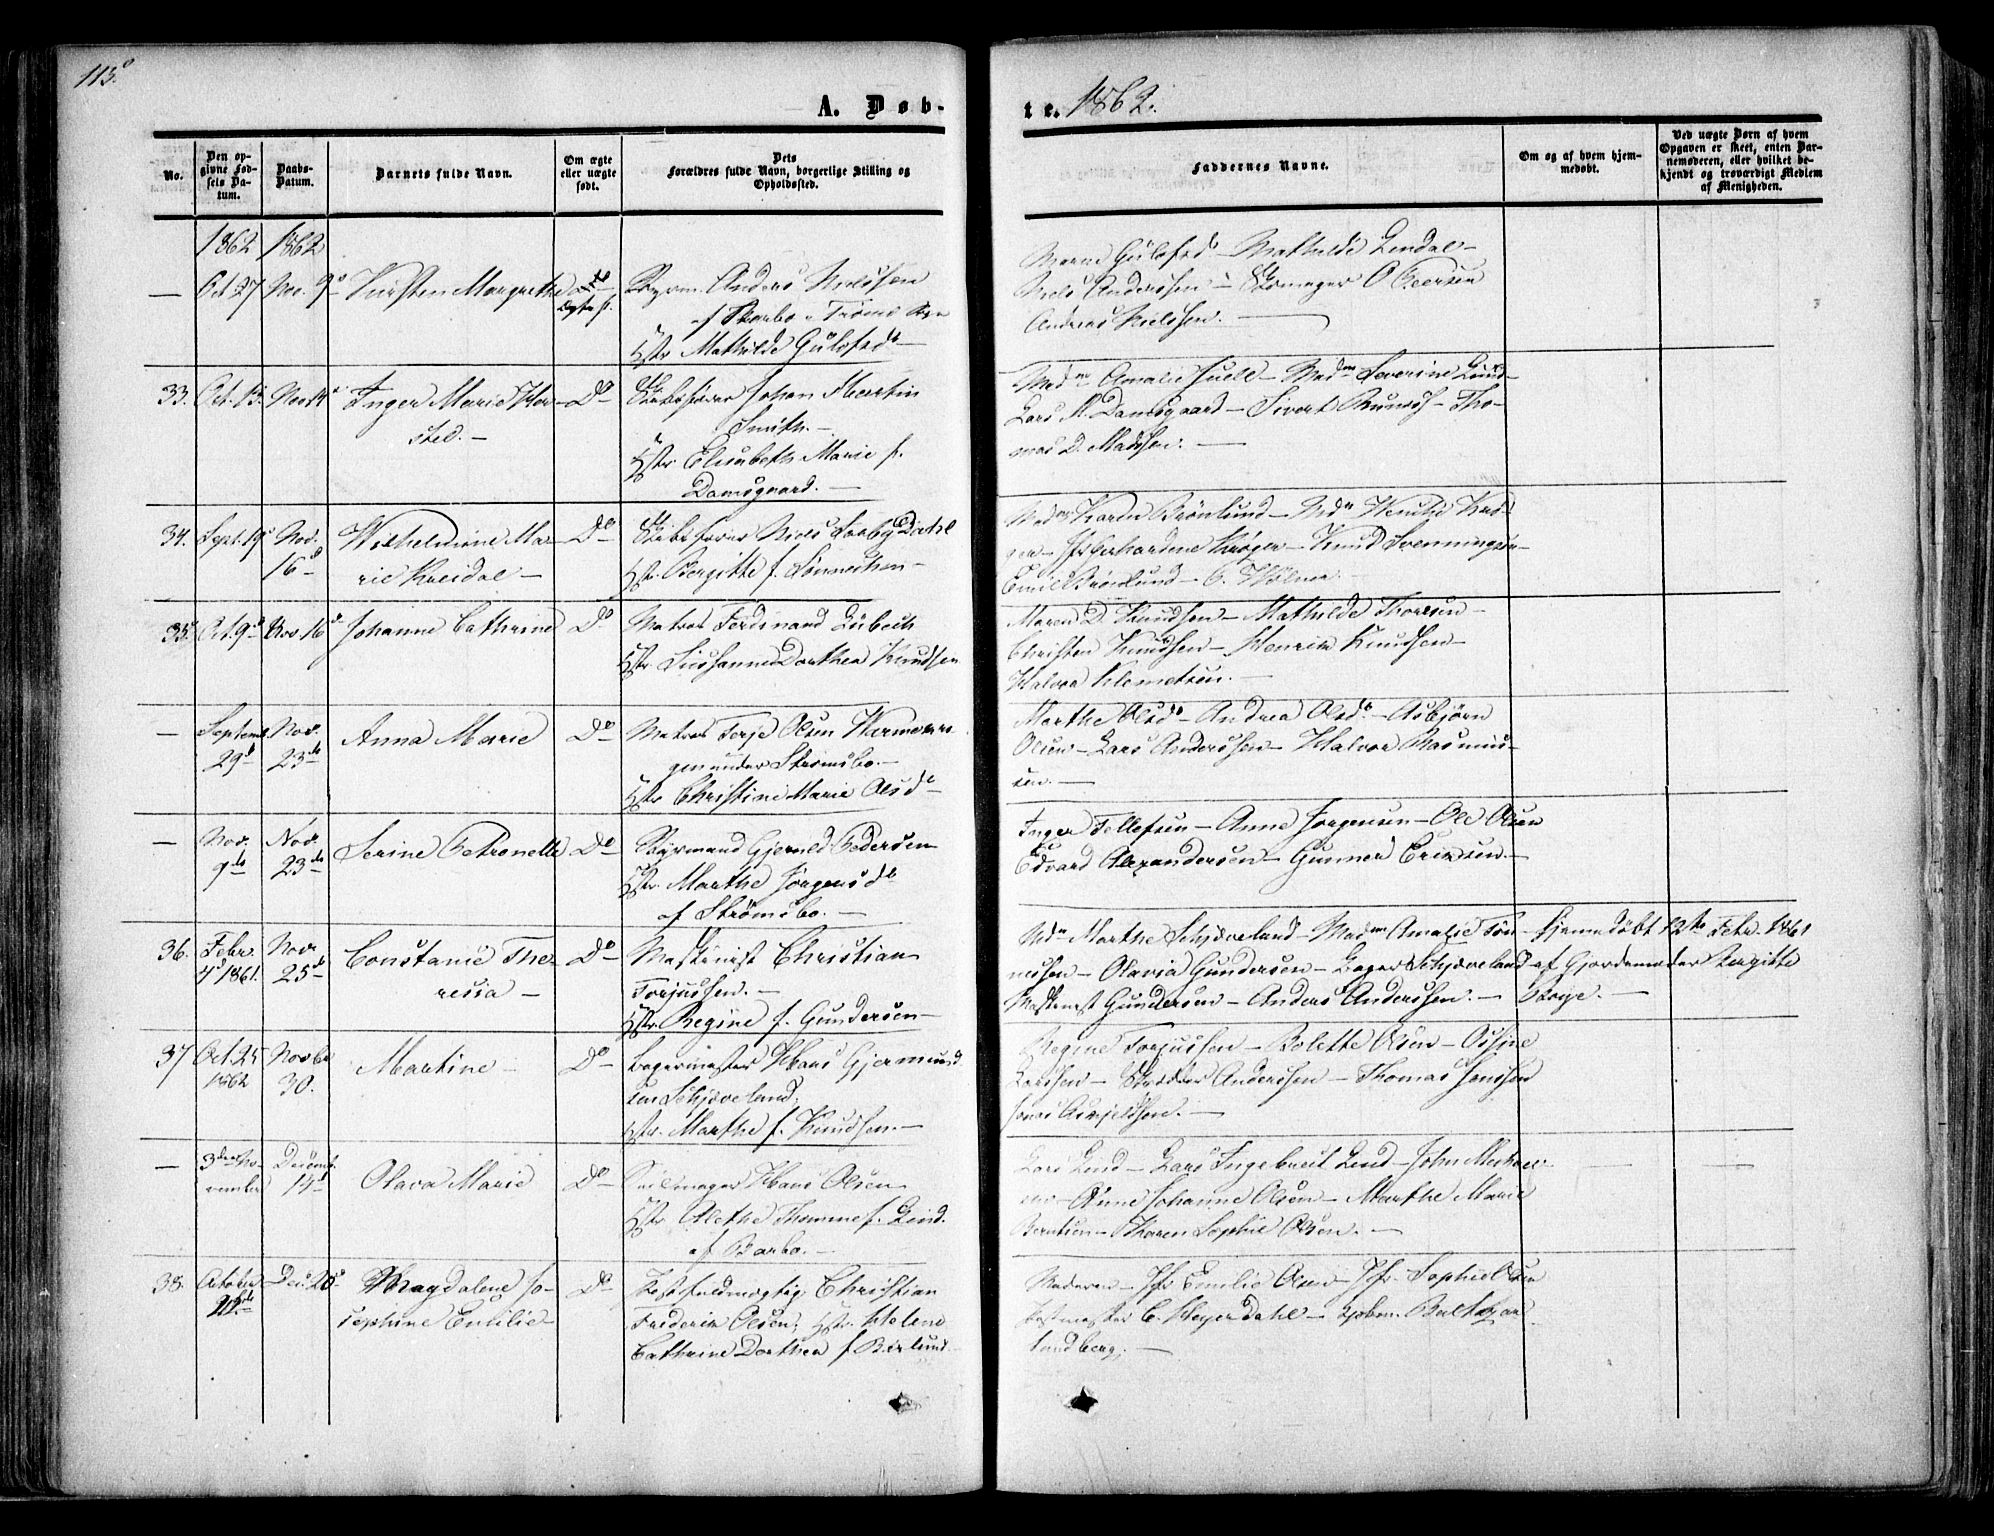 113.
A. Døb-
te. 1862.
No.
Den op-
givne Fød-
sels Da-
tum.
Daabs-
Datum.
Barnets fulde Navn.
Om ægte
eller uægte
født.
Dets
Forældres fulde Navn, borgerlige Stilling og
Opholdssted.
Faddernes Navne.
Om og af hvem hjem-
medøbt.
Ved uægte Børn af hvem
Opgaven er skeet, enten Bar-
nemoderen, eller hvilket be-
kjendt og troværdigt Medlem
af Menigheden.
1862 1862
— Oct 27 Nov. 9d Kirsten Margrethe
Anders Nielssen
af Barbo
Hstr. Mathilde Gulofsd.
Mathilde Lindal
Niels Anderssen — Skomager O
Andreas Nielssen. —
33. Oct. 13. Nov. 14 Inger Marie Har-
sted. — Do Skibsfører Johan Martin
Smith. —
Hstr. Elisabeth Marie f.
Damsgaard. —
Madm Amalie Juell — Madm Severine Lund
Lars M. Damsgaard — Sivert — Tho-
mas D. Madssen. —
34. Sept. 19 Nov.
16d Wilhelmine Ma-
rie Kreidal — Do Skibsfører Niels Dahl
Hstr. Bergitte f. Sønnichsen —
Mdm Karen Brønlund — Mdm
Jfr Gerhardine Krøger — Knud Svenningsen —
Emil Brønlund — C.
35. Oct. 9d Nov. 16d Johanne Cathrine Do Matros Ferdinand Lübeck
Hstr. Susanne Dorthea Knudsen
Maren D. Knudsen — Mathilde Thoresen —
Christen Knudsen — Henrik Knudsen —
Halvor Klemetsen. —
— Septembr
29d Nov.
23de Anna Marie Do Matros Terje Olsen
under Strømsbo. —
Hstr. Christine Marie Olsd. —
Marthe Olsd. — Andrea Olsd. — Asbjørn
Olsen — Lars Anderssen — Halvor Rasmus-
sen. —
— Nov.
9de Nov.
23de Serine Petronelle Do Gjerulf Pedersen
Hstr. Marthe Jørgensd.
af Strømsbo. —
Inger Tellefsen — Anne Jorgensen — Ole Olsen
Edvard Alexandersen — Gunner Eriksen —
36. Febr.
4d 1861. Nov.
25de Constanse The-
ressia — Do Maskinist Christian
Torjussen. —
Hstr. Regine f. Gundersen —
Mdm Marthe Schjæveland — Madm Amalie Tøn-
nessen — Olavia Gundersen — Bager Schjæveland —
Maskinist Gundersen — Anders Anderssen. —
Hjemmedøbt 12te Febr. 1861
af Gjordemoder Bergitte
37 Oct. 25
1862 Novbr
30. Martine — Do Bagermester Hans Gjermund
sen Schjæveland,
Hstr. Marthe f. Knudsen. —
Regine Torjussen — Bolette Olsen — Ossine
Larssen — Skrædder Anderssen — Thomas Jenssen
Jonas
— 3den No-
vember Decemb.
14d Olava Marie Do Seilmager Hans Olsen
Hstr. Alethe Thomine f. Lind.
af Barbo. —
Lars Lind — Lars Ingebreit Lind — John
Anne Johanne Olsen — Marthe Marie
Berntsen — Karen Sophie Olsen. —
38. October
Dec. 28 Magdalene Jo-
sephine Emilie Do Postfuldmægtig Christian
Frederik Olsen, Hstr. Helene
Cathrine Dorthea f.
Moderen — Jfr Emilie Olsen — Jfr. Sophie Olsen
Postmester C. Heyerdahl — Balthzar
Sandberg. —